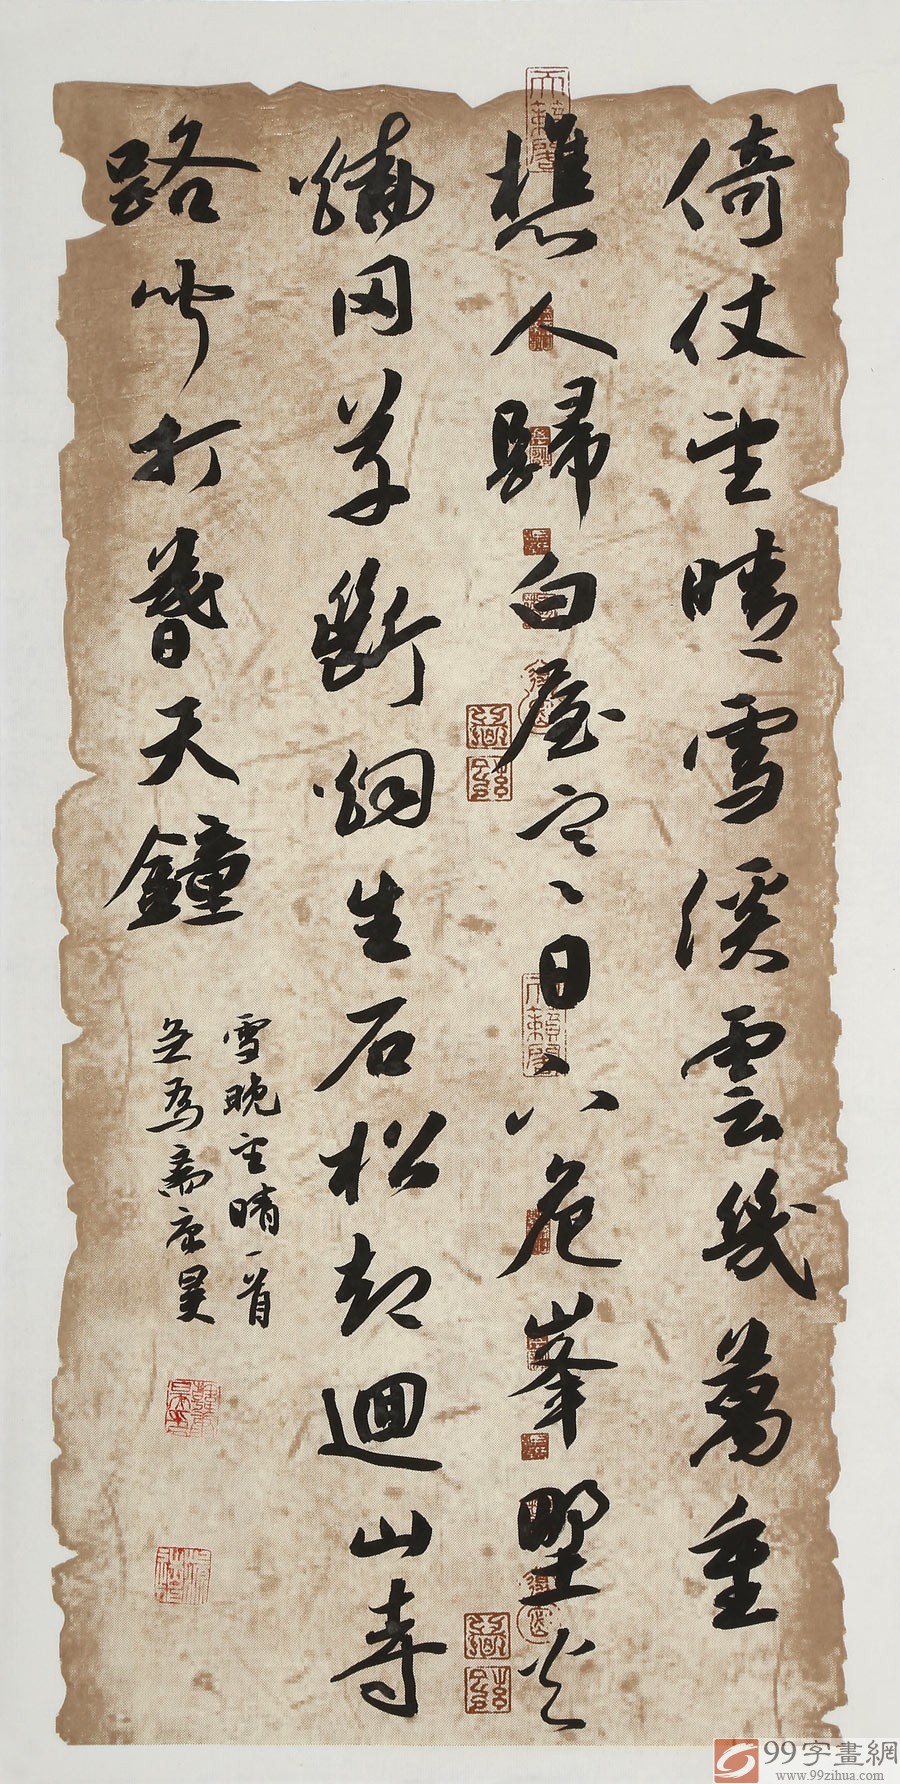 倚仗望晴雪溪雲幾萬重
樵人歸白屋寒日下危峯野火
燒岡草斷烟生石松却迴山寺
路聞打暮天鐘
雪晚望晴一首
無為齋
99字畫網
www.99zihua.com